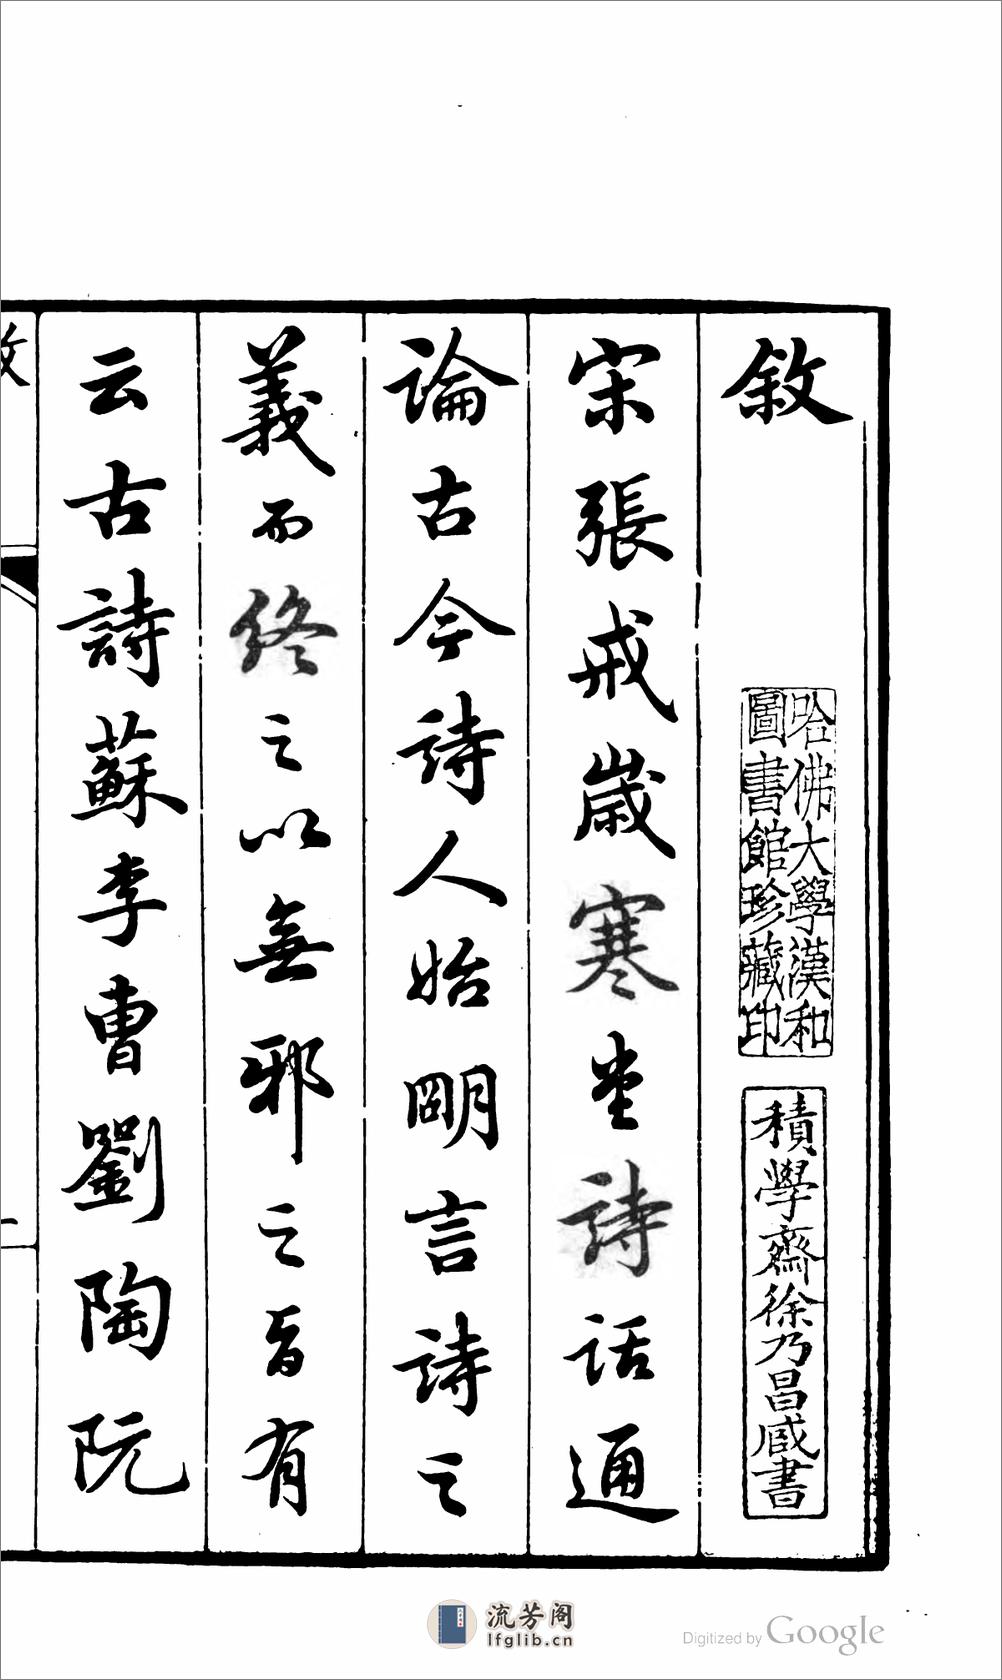 敘
哈佛大學漢和
圖書館珍藏印
積學齋徐乃昌藏書
宋張戒歲寒堂詩話通
論古今詩人始明言詩之
義而終之以無邪之旨有
云古詩蘇李曹劉陶阮
流芳阁
lfglib.cn
Digitized by Google